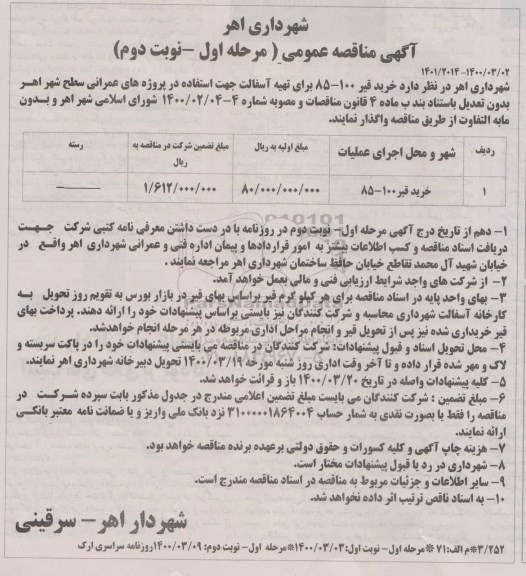 شهرداری اهر
آگهی مناقصه عمومی ( مرحله اول -نوبت دوم)
۱۴۰۰/۰۳/۰۲-۱۴۰۱/۲۰۱۴
شهرداری اهر در نظر دارد خرید قیر ۱۰۰-۸۵ برای تهیه آسفالت جهت استفاده در پروژه های عمرانی سطح شهر اهر
بدون تعدیل باستناد بند ب ماده ۴ قانون مناقصات و مصوبه شماره ۴-۱۴۰۰/۰۲/۰۴ شورای اسلامی شهر اهر و بدون
مابه التفاوت از طریق مناقصه واگذار نمایند.
ردیف شهر و محل اجرای عملیات مبلغ اولیه به ریال مبلغ تضمین شرکت در مناقصه به ریال رسته
۱ خرید قیر۱۰۰-۸۵ ۸۰/۰۰۰/۰۰۰/۰۰۰ ۱/۶۱۲/۰۰۰/۰۰۰ ———
۱- دهم از تاریخ درج آگهی مرحله اول- نوبت دوم در روزنامه با در دست داشتن معرفی نامه کتبی شرکت جهت
دریافت اسناد مناقصه و کسب اطلاعات بیشتر به امور قراردادها و پیمان اداره فنی و عمرانی شهرداری اهر واقع در
خیابان شهید آل محمد تقاطع خیابان حافظ ساختمان شهرداری اهر مراجعه نمایند .
۲- از شرکت های واجد شرایط ارزیابی فنی و مالی بعمل خواهد آمد.
۳- بهای واحد پایه در اسناد مناقصه برای هر کیلو گرم قیر براساس بهای قیر در بازار بورس به تقویم روز تحویل به
کارخانه آسفالت شهرداری محاسبه و شرکت کنندگان نیز بایستی براساس پیشنهادات خود را ارائه دهند. پرداخت بهای
قیر خریداری شده نیز پس از تحویل قیر و انجام مراحل اداری مربوطه در هر مرحله انجام خواهدشد.
۴- محل تحویل اسناد و قبول پیشنهادات: شرکت کنندگان در مناقصه می بایستی پیشنهادات خود را در پاکت سربسته و
لاک و مهر شده قرار داده و تا آخر وقت اداری روز شنبه مورخه ۱۴۰۰/۰۳/۱۹ تحویل دبیرخانه شهرداری اهر نمایند.
۵- کلیه پیشنهادات واصله در تاریخ ۱۴۰۰/۰۳/۲۰ باز و قرائت خواهد شد.
۶- مبلغ تضمین : شرکت کنندگان می بایست مبلغ تضمین اعلامی مندرج در جدول مذکور بابت سپرده شرکت در
مناقصه را فقط یا بصورت نقدی به شمار حساب ۳۱۰۰۰۰۰۱۸۶۴۰۰۴ نزد بانک ملی واریز و یا ضمانت نامه معتبر بانکی
ارائه نمایند.
۷- هزینه چاپ آگهی و کلیه کسورات و حقوق دولتی برعهده برنده مناقصه خواهد بود.
۸- شهرداری در رد یا قبول پیشنهادات مختار است.
۹- سایر اطلاعات و جزئیات مربوط به مناقصه در اسناد مناقصه مندرج است.
۱۰- به اسناد ناقص ترتیب اثر داده نخواهد شد.
شهردار اهر- سرقینی
۳/۲۵۲*م الف:۷۱ *مرحله اول- نوبت اول:۱۴۰۰/۰۳/۰۳*مرحله اول- نوبت دوم: ۱۴۰۰/۰۳/۰۹روزنامه سراسری ارک